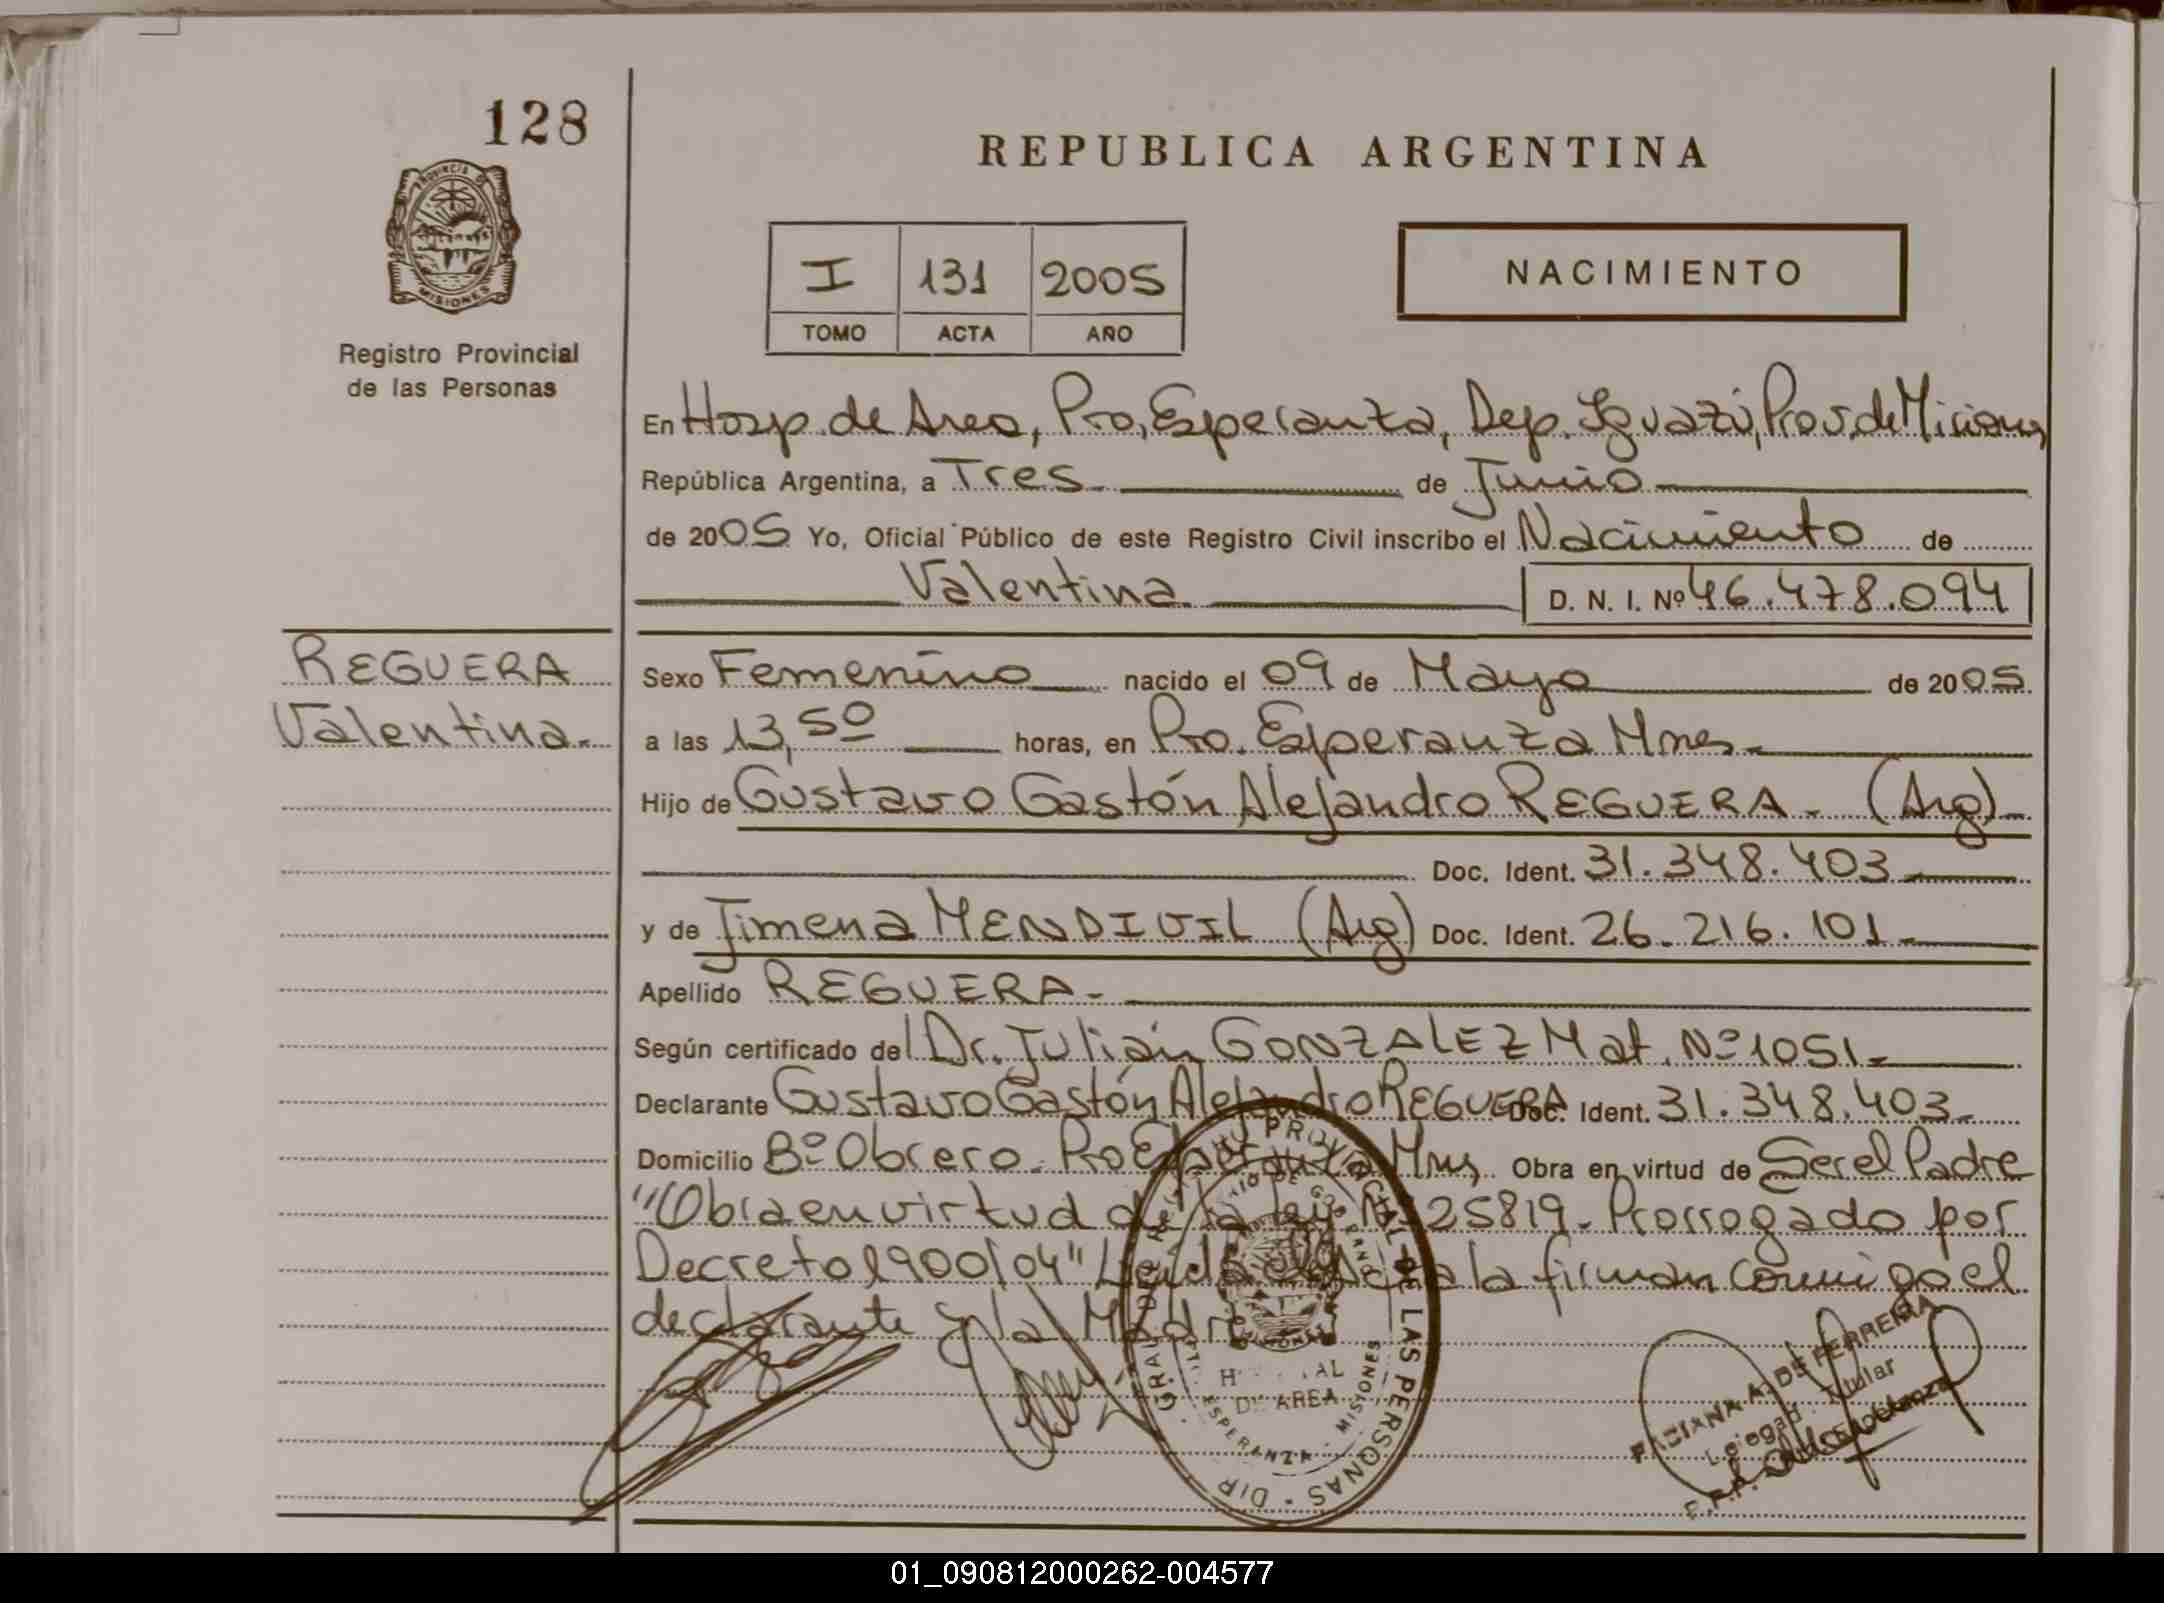 128
PROVINCIA DE
MISIONES
Registro Provincial
de las Personas
REPUBLICA ARGENTINA
I 131 2005
TOMO ACTA AÑO
NACIMIENTO
En Hosp. de Area, Pto, Esperanza, Dep. Iguazú, Prov. de Misiones
República Argentina, a Tres de Junio
de 2005 Yo, Oficial Público de este Registro Civil inscribo el Nacimiento de
Valentina D. N. I. Nº 46.478.094
REGUERA
Valentina.-
Sexo Femenino nacido el 09 de Mayo de 2005
a las 13,50 horas, en Pto. Esperanza Mnes.-
Hijo de Gustavo Gastón Alejandro REGUERA.- (Arg)-
Doc. Ident. 31.348.403
y de Jimena MENDIVIL (Arg) Doc. Ident. 26.216.101.-
Apellido REGUERA.-
Según certificado del Dr. Julián GONZALEZ Mat. Nº 1051.-
Declarante Gustavo Gastón Alejandro REGUERA Doc. Ident. 31.348.403.-
Domicilio Bº Obrero. Pto Esperanza Mnes Obra en virtud de Ser el Padre
"Obra en virtud de la ley Nº 25819. Prorrogado por
Decreto 1900/04" Leida el Acta la firman conmigo el
declarante y la Madre
REGISTRO PROVINCIAL DE LAS PERSONAS
DIR GRAL DEL
MISIONES
DE AREA
ESPERANZA - MISIONES
A. DE FERRERA
Titular
01_090812000262-004577